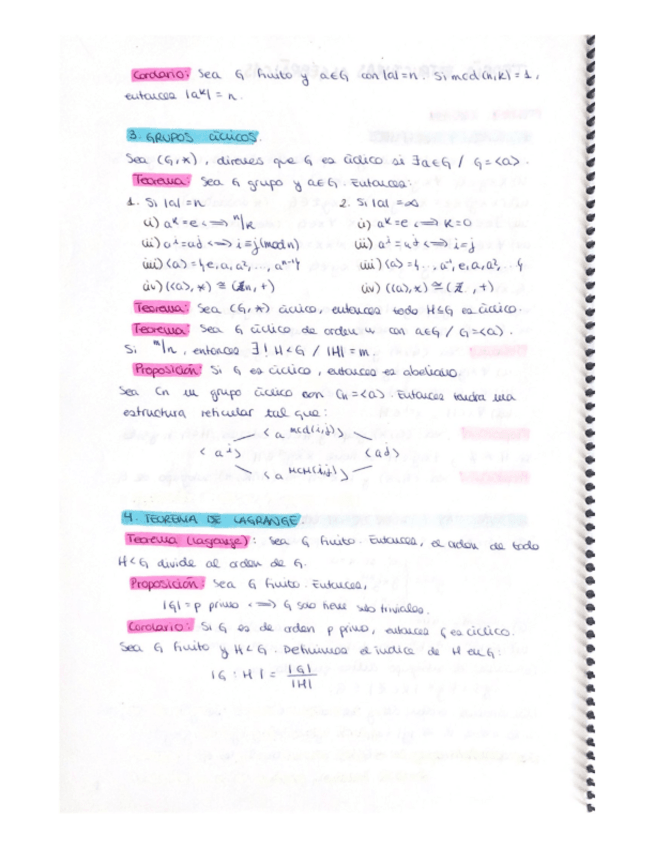 Corolario: Sea G finito y a∈G con |a|=n. Si mcd(n,k)=1,
entonces |aᵏ| = n.
3. GRUPOS CÍCLICOS.
Sea (G,*), diremos que G es cíclico si ∃a∈G / G=<a>.
Teorema: Sea G grupo y a∈G. Entonces:
1. Si |a|=n 2. Si |a|=∞
i) aᵏ=e <=> n/k i) aᵏ=e <=> k=0
ii) aⁱ=aʲ <=> i≡j(mod n) ii) aⁱ=aʲ <=> i=j
iii) <a>={e,a,a²,..., aⁿ⁻¹} iii) <a>={..., a⁻¹,e,a,a²,...}
iv) (<a>,*) ≅ (ℤn,+) iv) (<a>,*) ≅ (ℤ,+)
Teorema: Sea (G,*) cíclico, entonces todo H≤G es cíclico.
Teorema: Sea G cíclico de orden n con a∈G / G=<a>.
Si m/n, entonces ∃! H<G / |H|=m.
Proposición: Si G es cíclico, entonces es abeliano.
Sea Cn un grupo cíclico con Cn=<a>. Entonces tendrá una
estructura reticular tal que:
<a mcd(i,j)>
<aⁱ> <aʲ>
<a MCM(i,j)>
4. TEOREMA DE LAGRANGE.
Teorema (Lagrange): Sea G finito. Entonces, el orden de todo
H<G divide al orden de G.
Proposición: Sea G finito. Entonces,
|G|=p primo <=> G solo tiene sub. triviales.
Corolario: Si G es de orden p primo, entonces G es cíclico.
Sea G finito y H<G. Definimos el índice de H en G:
|G:H| = |G| / |H|